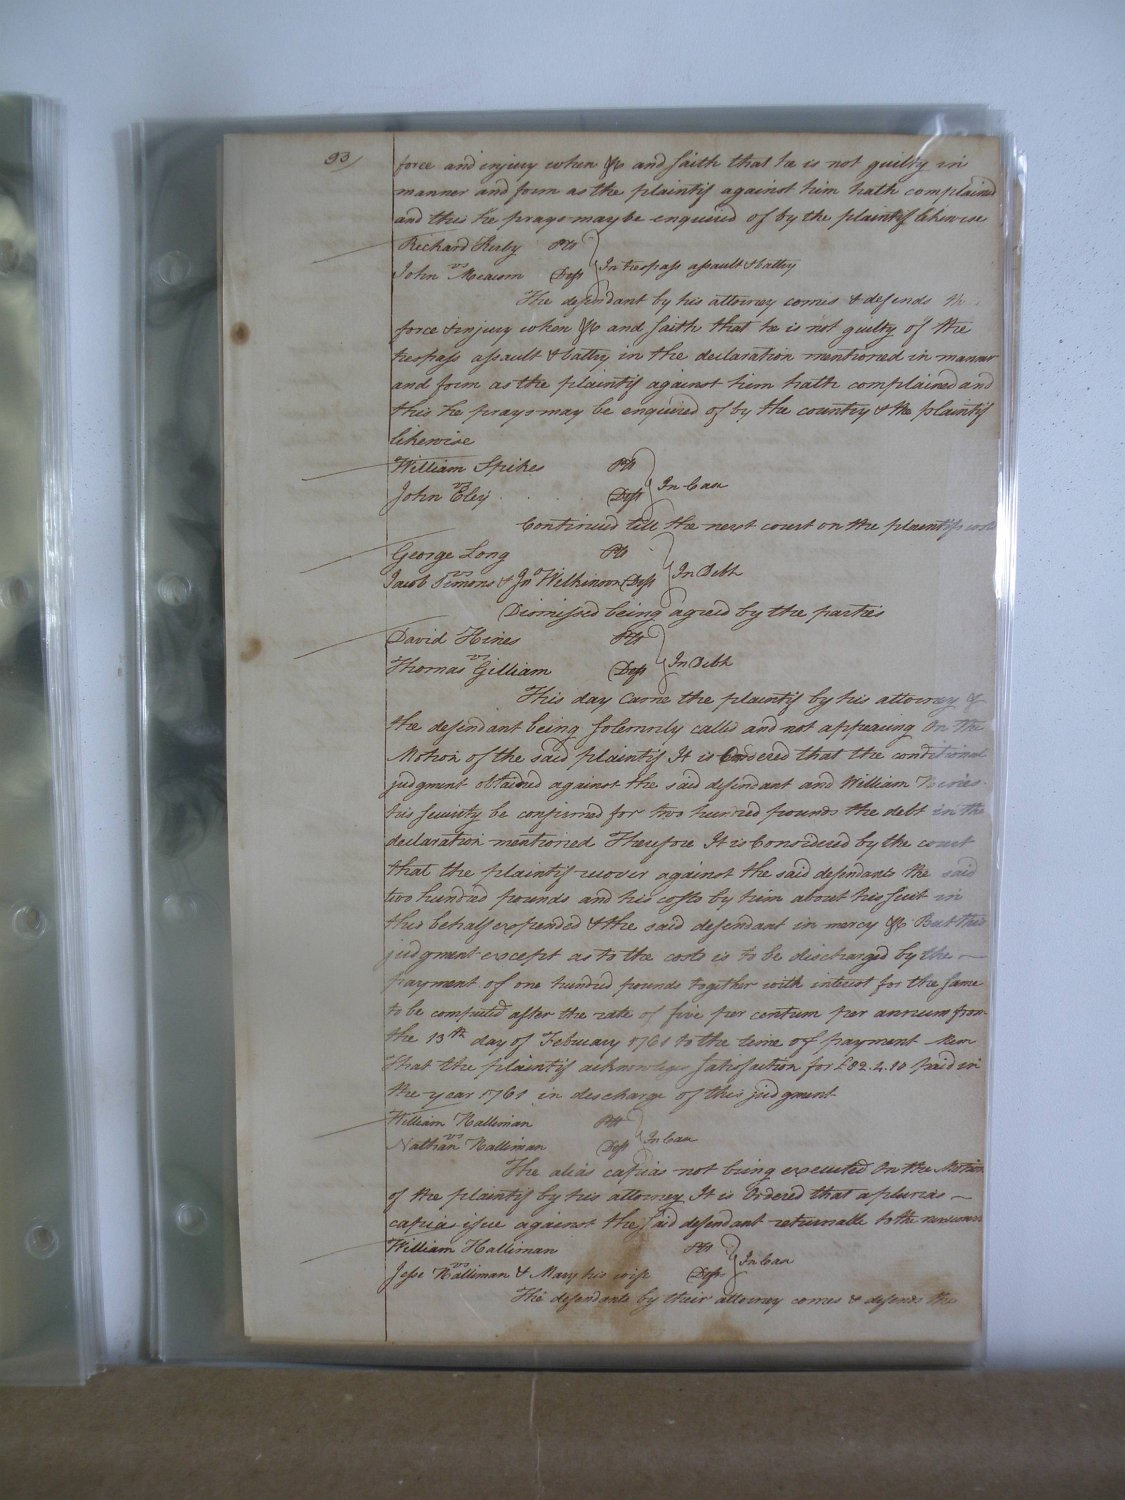 93/
force and injury when &c and saith that he is not guilty in
manner and form as the plaintif against him hath complained
and this he prays may be enquired of by the plaintif likewise
Richard Kerby Plt
vs
John Meacom Deft
In trespass assault & battry
The defendant by his attorney comes & defends the
force & injury when &c and saith that he is not guilty of the
trespass assault & battry in the declaration mentioned in manner
and form as the plaintif against him hath complained and
this he prays may be enquired of by the country & the plaintif
likewise
William Spikes Plt
vs
John Eley Deft
In Case
Continued till the next court on the plaintifs costs
George Long Plt
vs
Jacob Simons & Jno Wilkinson Deft
In Debt
Dismissed being agreed by the parties
David Hines Plt
vs
Thomas Gilliam Deft
In Debt
This day came the plaintif by his attorney &
the defendant being solemnly called and not appearing On the
Motion of the said plaintif It is Ordered that the conditional
judgment obtained against the said defendant and William
his security be confirmed for two hundred pounds the debt in the
declaration mentioned Therefore It is Considered by the court
that the plaintif recover against the said defendants the said
two hundred pounds and his costs by him about his suit in
this behalf expended & the said defendant in mercy &c But this
judgment except as to the costs is to be discharged by the
payment of one hundred pounds together with interest for the same
to be computed after the rate of five per centum per annum from
the 13th day of February 1761 to the time of payment Mem
that the plaintif acknowleges satisfaction for £82.4.10 paid in
the year 1761 in discharge of this judgment
William Halliman Plt
vs
Nathan Halliman Deft
In Case
The alias capias not being executed On the Motion
of the plaintif by his attorney It is Ordered that a plurias
capias issue against the said defendant returnable to the next court
William Halliman Plt
vs
Jesse Halliman & Mary his wife Deft
In Case
The defendants by their attorney comes & defends the